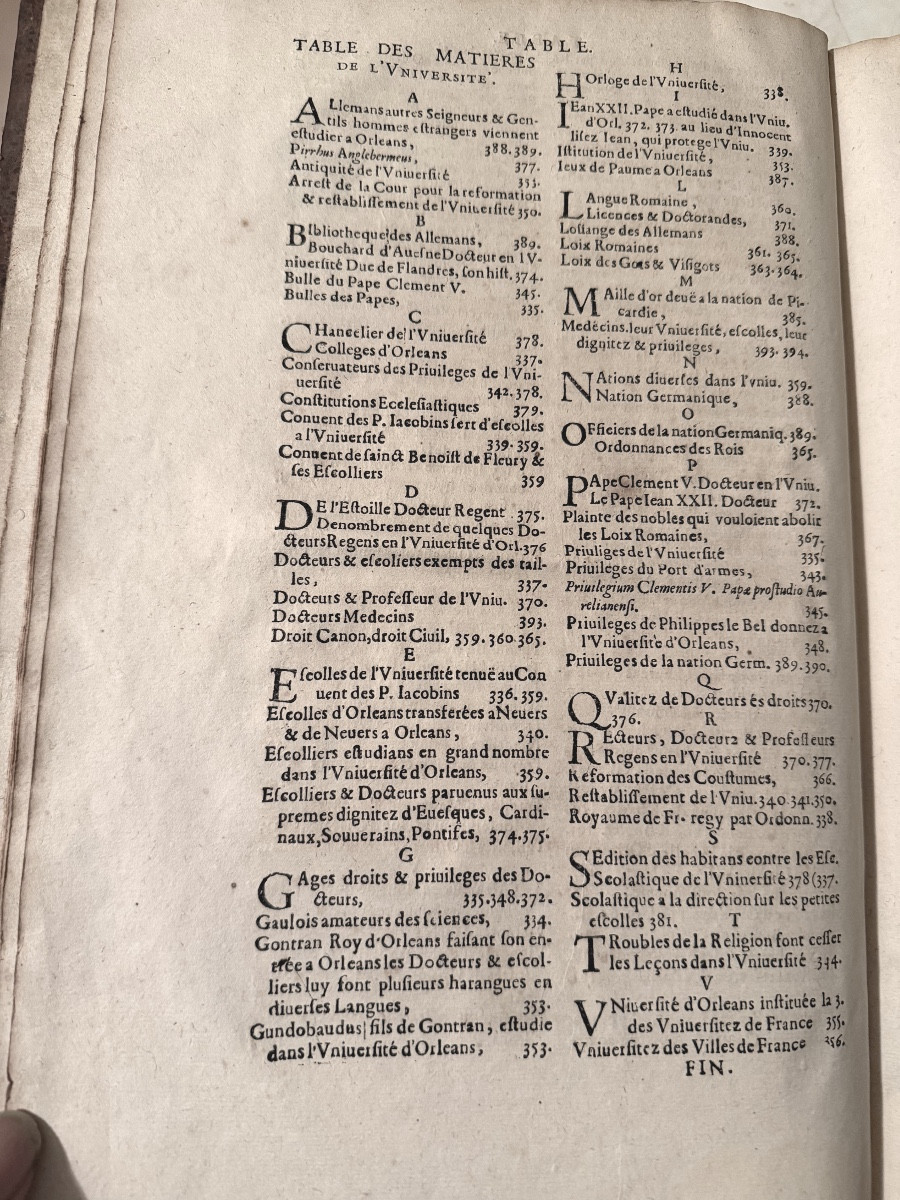 TABLE.
TABLE DES MATIERES
DE L'VNIVERSITE'.
A
ALlemans autres Seigneurs & Gen-
tils hommes estrangers viennent
estudier a Orleans, 388.389.
Pirrhus Anglebermeus, 377.
Antiquité de l'Vniuersité 353.
Arrest de la Cour pour la reformation
& restablissement de l'Vniuersité 350.
B
BIbliotheque des Allemans, 389.
Bouchard d'Auesne Docteur en l V-
niuersité Duc de Flandres, son hist. 374.
Bulle du Pape Clement V. 345.
Bulles des Papes, 335.
C
CHancelier de l'Vniuersité 378.
Colleges d'Orleans 337.
Conseruateurs des Priuileges de l Vni-
uersité 342.378.
Constitutions Ecclesiastiques 379.
Conuent des P. Iacobins sert d'escolles
a l'Vniuersité 339.359.
Conuent de sainct Benoist de Fleury &
ses Escolliers 359
D
DE l'Estoille Docteur Regent 375.
Denombrement de quelques Do-
cteurs Regens en l'Vniuersité d'Orl.376
Docteurs & escoliers exempts des tail-
les, 337.
Docteuts & Professeur de l'Vniu. 370.
Docteurs Medecins 393.
Droit Canon, droit Ciuil, 359.360.365.
E
Escolles de l'Vniuersité tenuë au Con
uent des P. Iacobins 336.359.
Escolles d'Orleans transferées a Neuers
& de Neuers a Orleans, 340.
Escolliers estudians en grand nombre
dans l'Vniuersité d'Orleans, 359.
Escolliers & Docteurs paruenus aux su-
premes dignitez d'Euesques, Cardi-
naux, Souuerains, Pontifes, 374.375.
G
GAges droits & priuileges des Do-
cteurs, 335.348.372.
Gaulois amateurs des sciences, 334.
Gontran Roy d'Orleans faisant son en-
trée a Orleans les Docteurs & escol-
liers luy font plusieurs harangues en
diuerses Langues, 353.
Gundobaudus fils de Gontran, estudie
dans l'Vniuersité d'Orleans, 353.
H
HOrloge de l'Vniuersité, 338.
I
IEan XXII. Pape a estudié dans l'Vniu.
d'Orl. 372. 373. au lieu d'Innocent
lisez Iean, qui protege l'Vniu. 339.
Istitution de l'Vniuersité, 353.
Ieux de Paume a Orleans 387.
L
LAngue Romaine, 360.
Licences & Doctorandes, 371.
Loüange des Allemans 388.
Loix Romaines 361. 365.
Loix des Gots & Visigots 363.364.
M
MAille d'or deuë a la nation de Pi-
cardie, 385.
Medecins.leur Vniuersité, escolles, leur
dignitez & priuileges, 393.394.
N
NAtions diuerses dans l'vniu. 359.
Nation Germanique, 388.
O
OFficiers de la nation Germaniq. 389.
Ordonnances des Rois 365.
P
PApe Clement V. Docteur en l'Vniu.
Le Pape Iean XXII. Docteur 372.
Plainte des nobles qui vouloient abolir
les Loix Romaines, 367.
Priuliges de l'Vniuersité 335.
Priuileges du Port d'armes, 343.
Priuilegium Clementis V. Papæ pro studio Au-
relianensi. 345.
Priuileges de Philippes le Bel donnez a
l'Vniuersité d'Orleans, 348.
Priuileges de la nation Germ. 389.390.
Q
QValitez de Docteurs és droits 370.
376. R
REcteurs, Docteurz & Professeurs
Regens en l'Vniuersité 370.377.
Reformation des Coustumes, 366.
Restablissement de l'Vniu.340.341.350.
Royaume de Fr. regy par Ordonn. 338.
S
SEdition des habitans contre les Esc.
Scolastique de l'Vninersité 378 (337.
Scolastique a la direction sur les petites
escolles 381. T
TRoubles de la Religion font cesser
les Leçons dans l'Vniuersité 334.
V
VNiuersité d'Orleans instituée la 3.
des Vniuersitez de France 355.
Vniuersitez des Villes de France 356.
FIN.